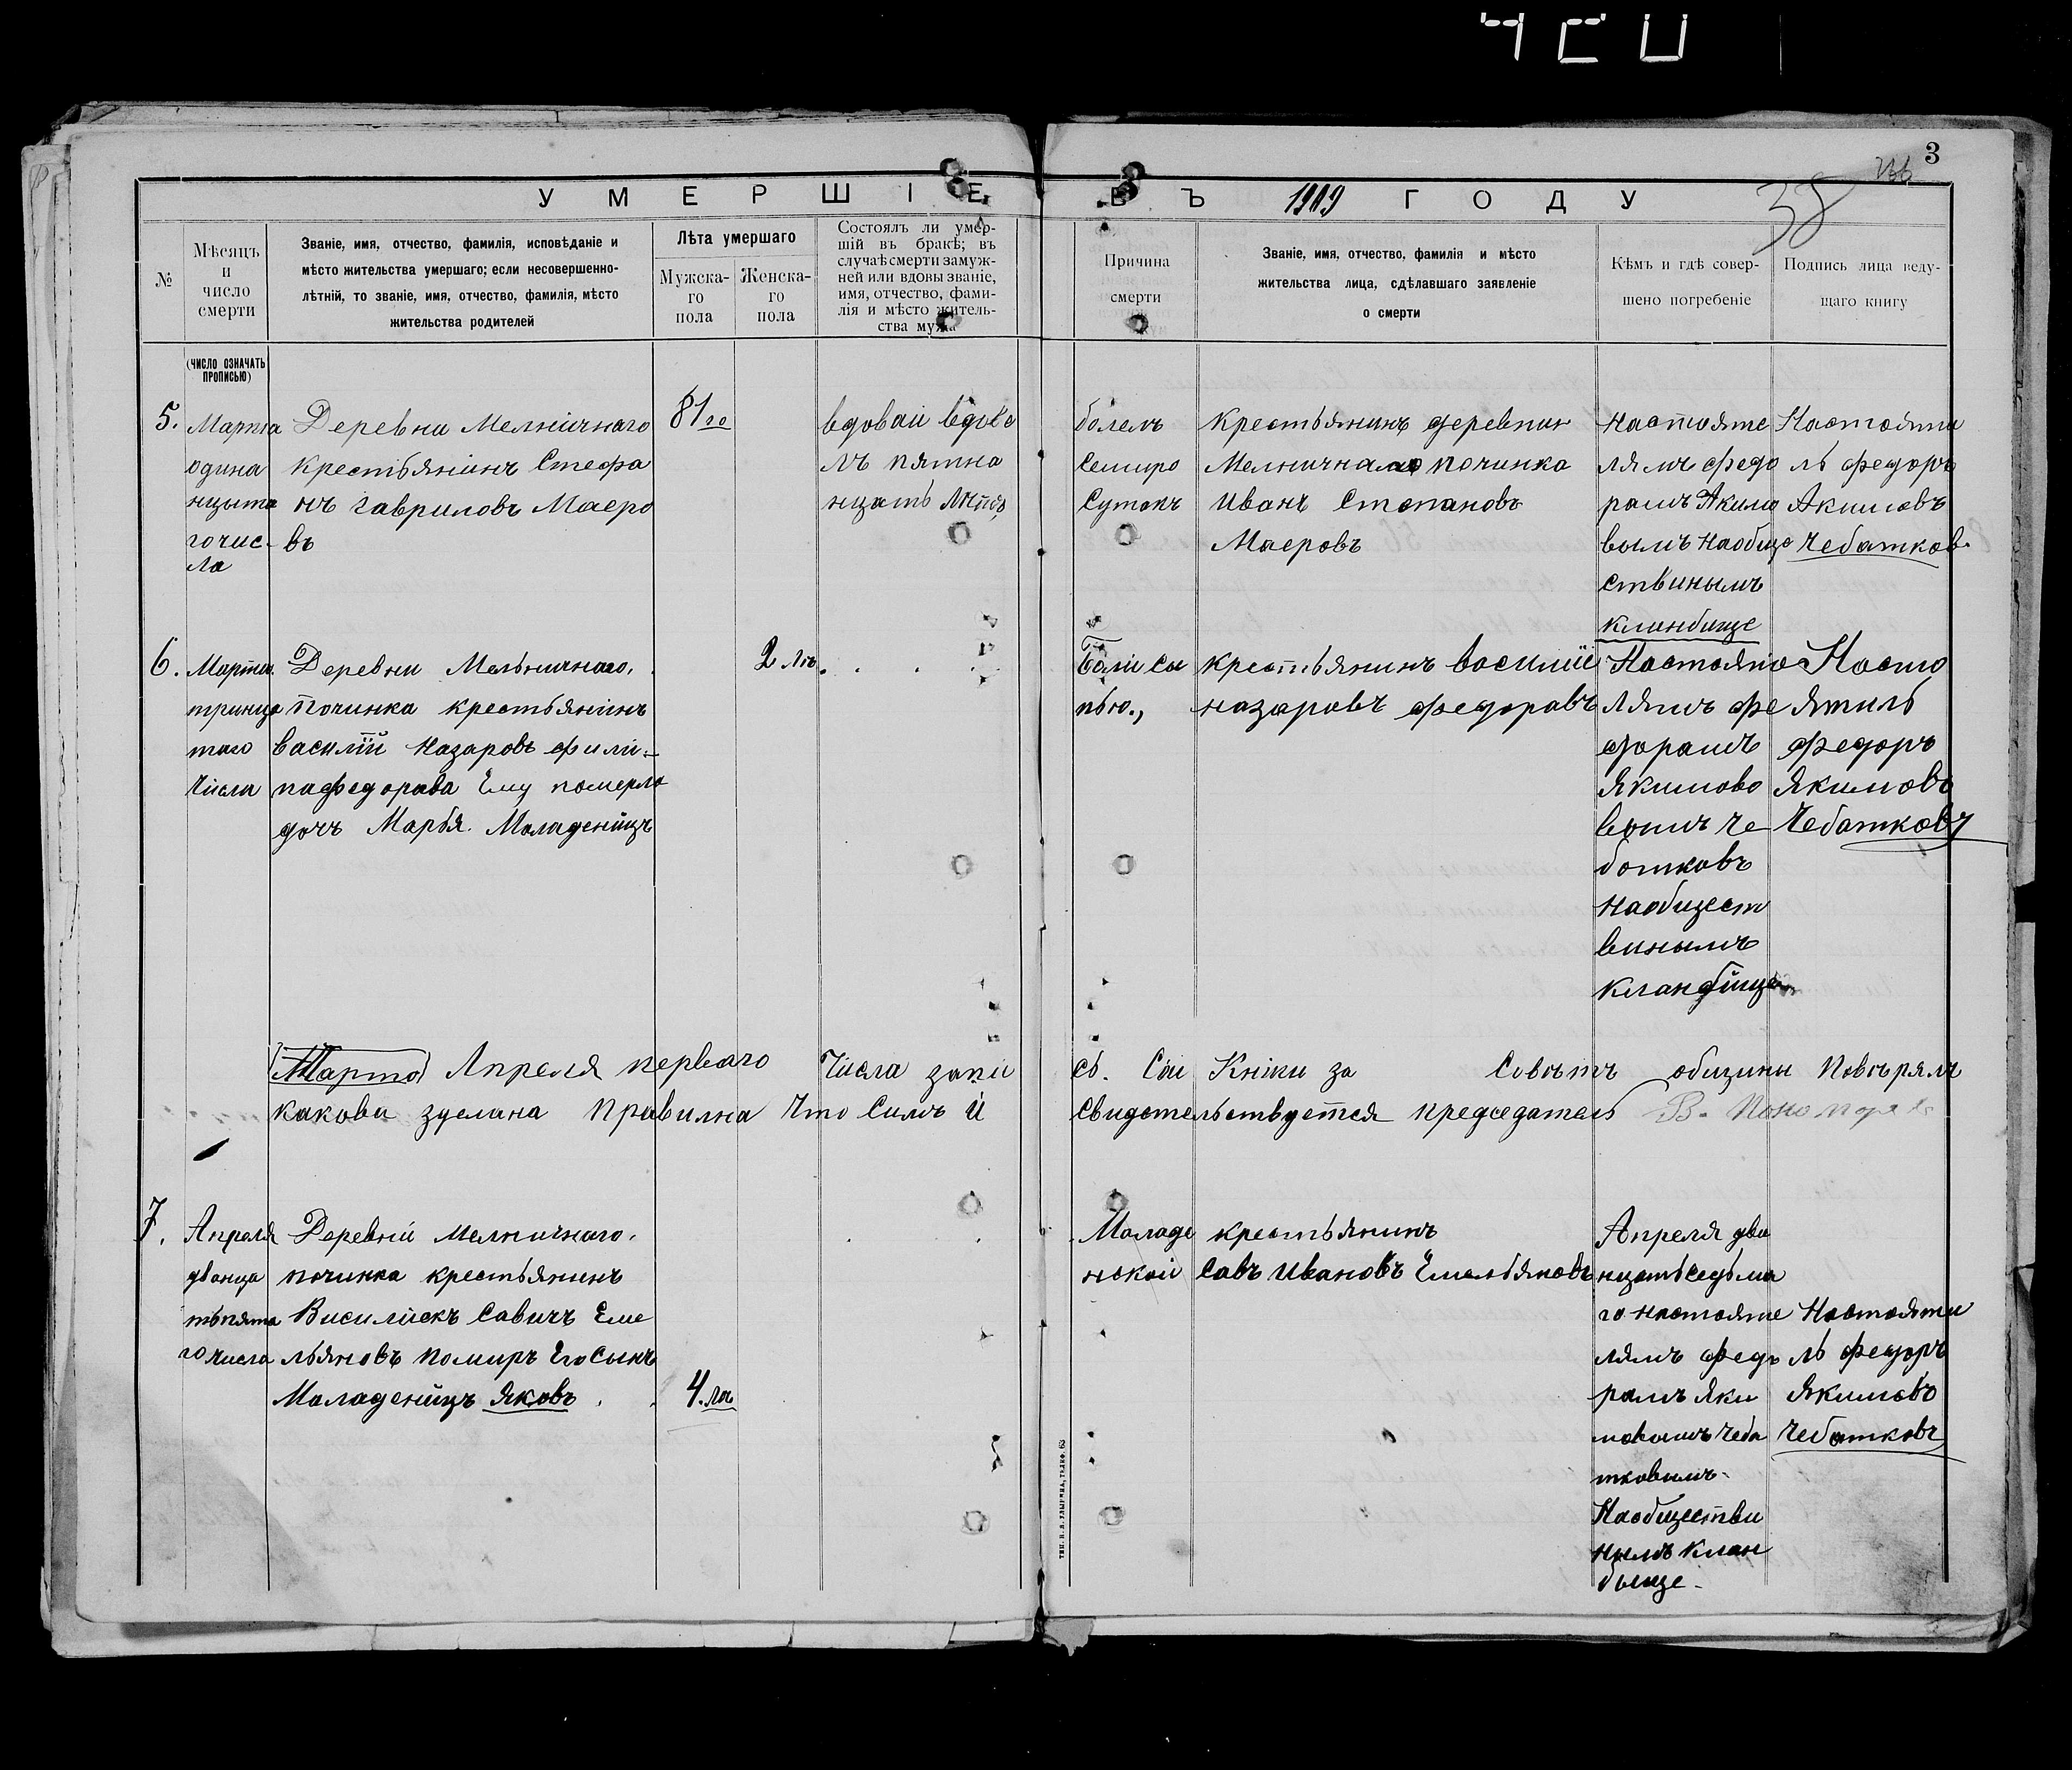 3
38
УМЕРШІЕ ВЪ 1909 ГОДУ
№
Мѣсяцъ
и
число
смерти
Званіе, имя, отчество, фамилія, исповѣданіе и
мѣсто жительства умершаго; если несовершенно-
лѣтній, то званіе, имя, отчество, фамилія, мѣсто
жительства родителей
Лѣта умершаго
Мужска-
го
пола
Женска-
го
пола
Состоялъ ли умер-
шій въ бракѣ; въ
случаѣ смерти замуж-
ней или вдовы званіе,
имя, отчество, фами-
лія и мѣсто житель-
ства мужа
Причина
смерти
Званіе, имя, отчество, фамилія и мѣсто
жительства лица, сдѣлавшаго заявленіе
о смерти
Кѣмъ и гдѣ совер-
шено погребеніе
Подпись лица веду-
щаго книгу
(ЧИСЛО ОЗНАЧАТЬ
ПРОПИСЬЮ)
5.
Марта
одина
нцыта
го чис-
ла
Деревни Мелничнаго
крестьянинъ Стефа
нъ гавриловъ Маеро
въ
81 го
вдоваи вдове
лъ пятна
нцать
болелъ
Семиро
Сутокъ
Крестьянинъ деревнии
Мелничнаго починка
Иванъ Степановъ
Маеровъ
Настояте
лямъ федо
рамъ Акимо
вымъ наобще
ствинымъ
кланбище
Настояти
ль федоръ
Акимовъ
Чебатков.
6.
Марта
тринца
таго
Числа
Деревни Мельничнаго,
Починка крестьянинъ
василій Назаровъ фили-
пафедорава Ему померла
дочъ Марья. Маладенйцъ
2 лѣ
Балі сы
пью.,
крестьянинъ василій
назаровъ федоравъ
Настояте
лямъ фе
дорамъ
Якимово
вымъ Че
ботковъ
наобщест
винымъ
кланбйще
Насто
ятиль
федоръ
Якимовъ
Чебатковъ
Марта Апреля перваго Числа запи сь. Сйи Кники за Советъ общины Поверялъ
какова зделана Правилна Что Симъ й Свидетельствуется председатель В. Поно
7.
Апреля
дванца
тьпята
го числа
Деревнй Мелничнаго.
починка крестьянинъ
Висилйскъ Савичъ Еме
льяновъ помиръ Его Сынъ
Маладенйцъ Яковъ
4. лѣ
Маладе
нской
крестьянинъ
Савъ Ивановъ Емельяновъ
Апреля два
нцатьседьма
го настояте
лямъ федо
рамъ Яки
мовымъ Чеба
тковымъ-
Наобществи
нымъ клан
быще-
Настояти
ль федоръ
Якимовъ
Чебатковъ